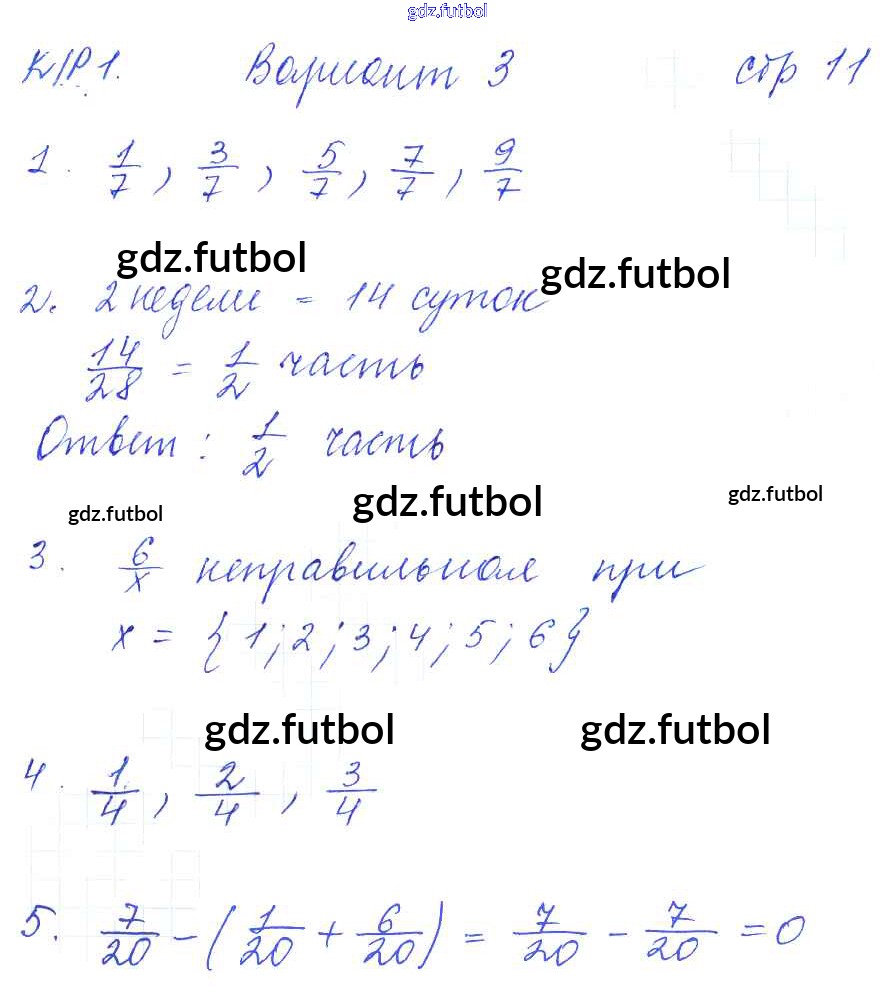 gdz.futbol
К/Р 1. Вариант 3 стр 11
1. 1/7, 3/7, 5/7, 7/7, 9/7
gdz.futbol gdz.futbol
2. 2 недели = 14 суток
14/28 = 1/2 часть
Ответ: 1/2 часть
gdz.futbol gdz.futbol gdz.futbol
3. 6/x неправильная при
x = {1; 2; 3; 4; 5; 6}
gdz.futbol gdz.futbol
4. 1/4, 2/4, 3/4
5. 7/20 - (1/20 + 6/20) = 7/20 - 7/20 = 0